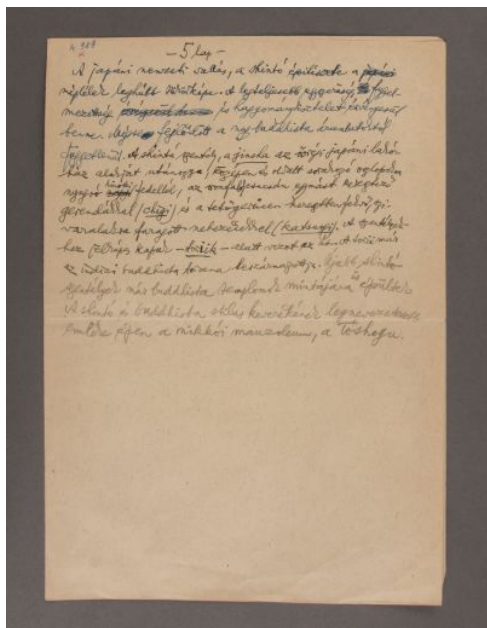 – 5 lap –
A japáni nemzeti vallás, a shintó építészete a japáni
néplélek leghűbb tükörképe. A legteljesebb egyszerűség,
és hagyománytisztelet
benne. fejlődött a nagy buddhista áramlatoktól
függetlenül. A shintó szentély, a jinsha az ősrégi japáni lakó-
ház alakját utánozza,
nyugvó fedéllel, az oromfal
gerendákkal (chigi) és a tetőgerincen keresztben fekvő, szi-
varalakúra faragott nehezékekkel (katsuogi). A szentélyek-
hez jellegzetes kapuk – torii-k – alatt vezet az út. A torii már
az indiai buddhista torana leszármazottja. Újabb shintó-
szentélyek már buddhista templomok mintájára is épültek.
A shintó és buddhista stílus keverékének legnevezetesebb
emléke éppen a nikkói mauzoleum, a Toshogu.